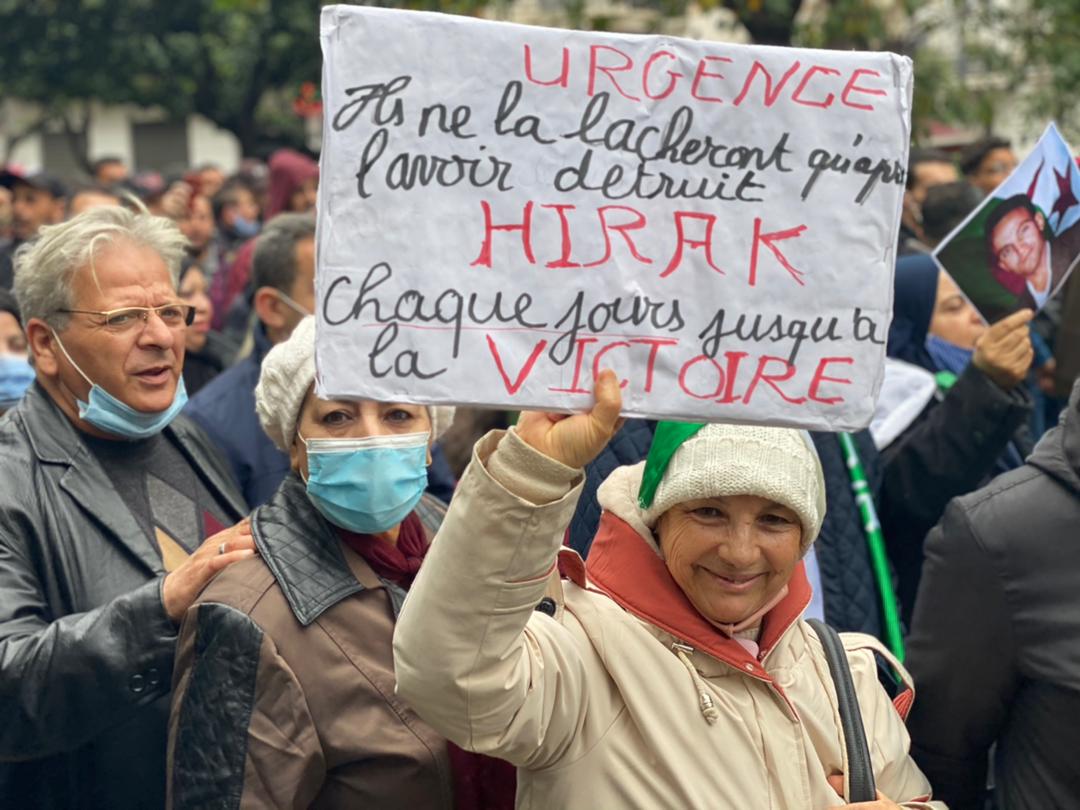 URGENCE
Ils ne la lacheront qu'apr
l'avoir detruit
HIRAK
Chaque jours jusqu'a
la VICTOIRE